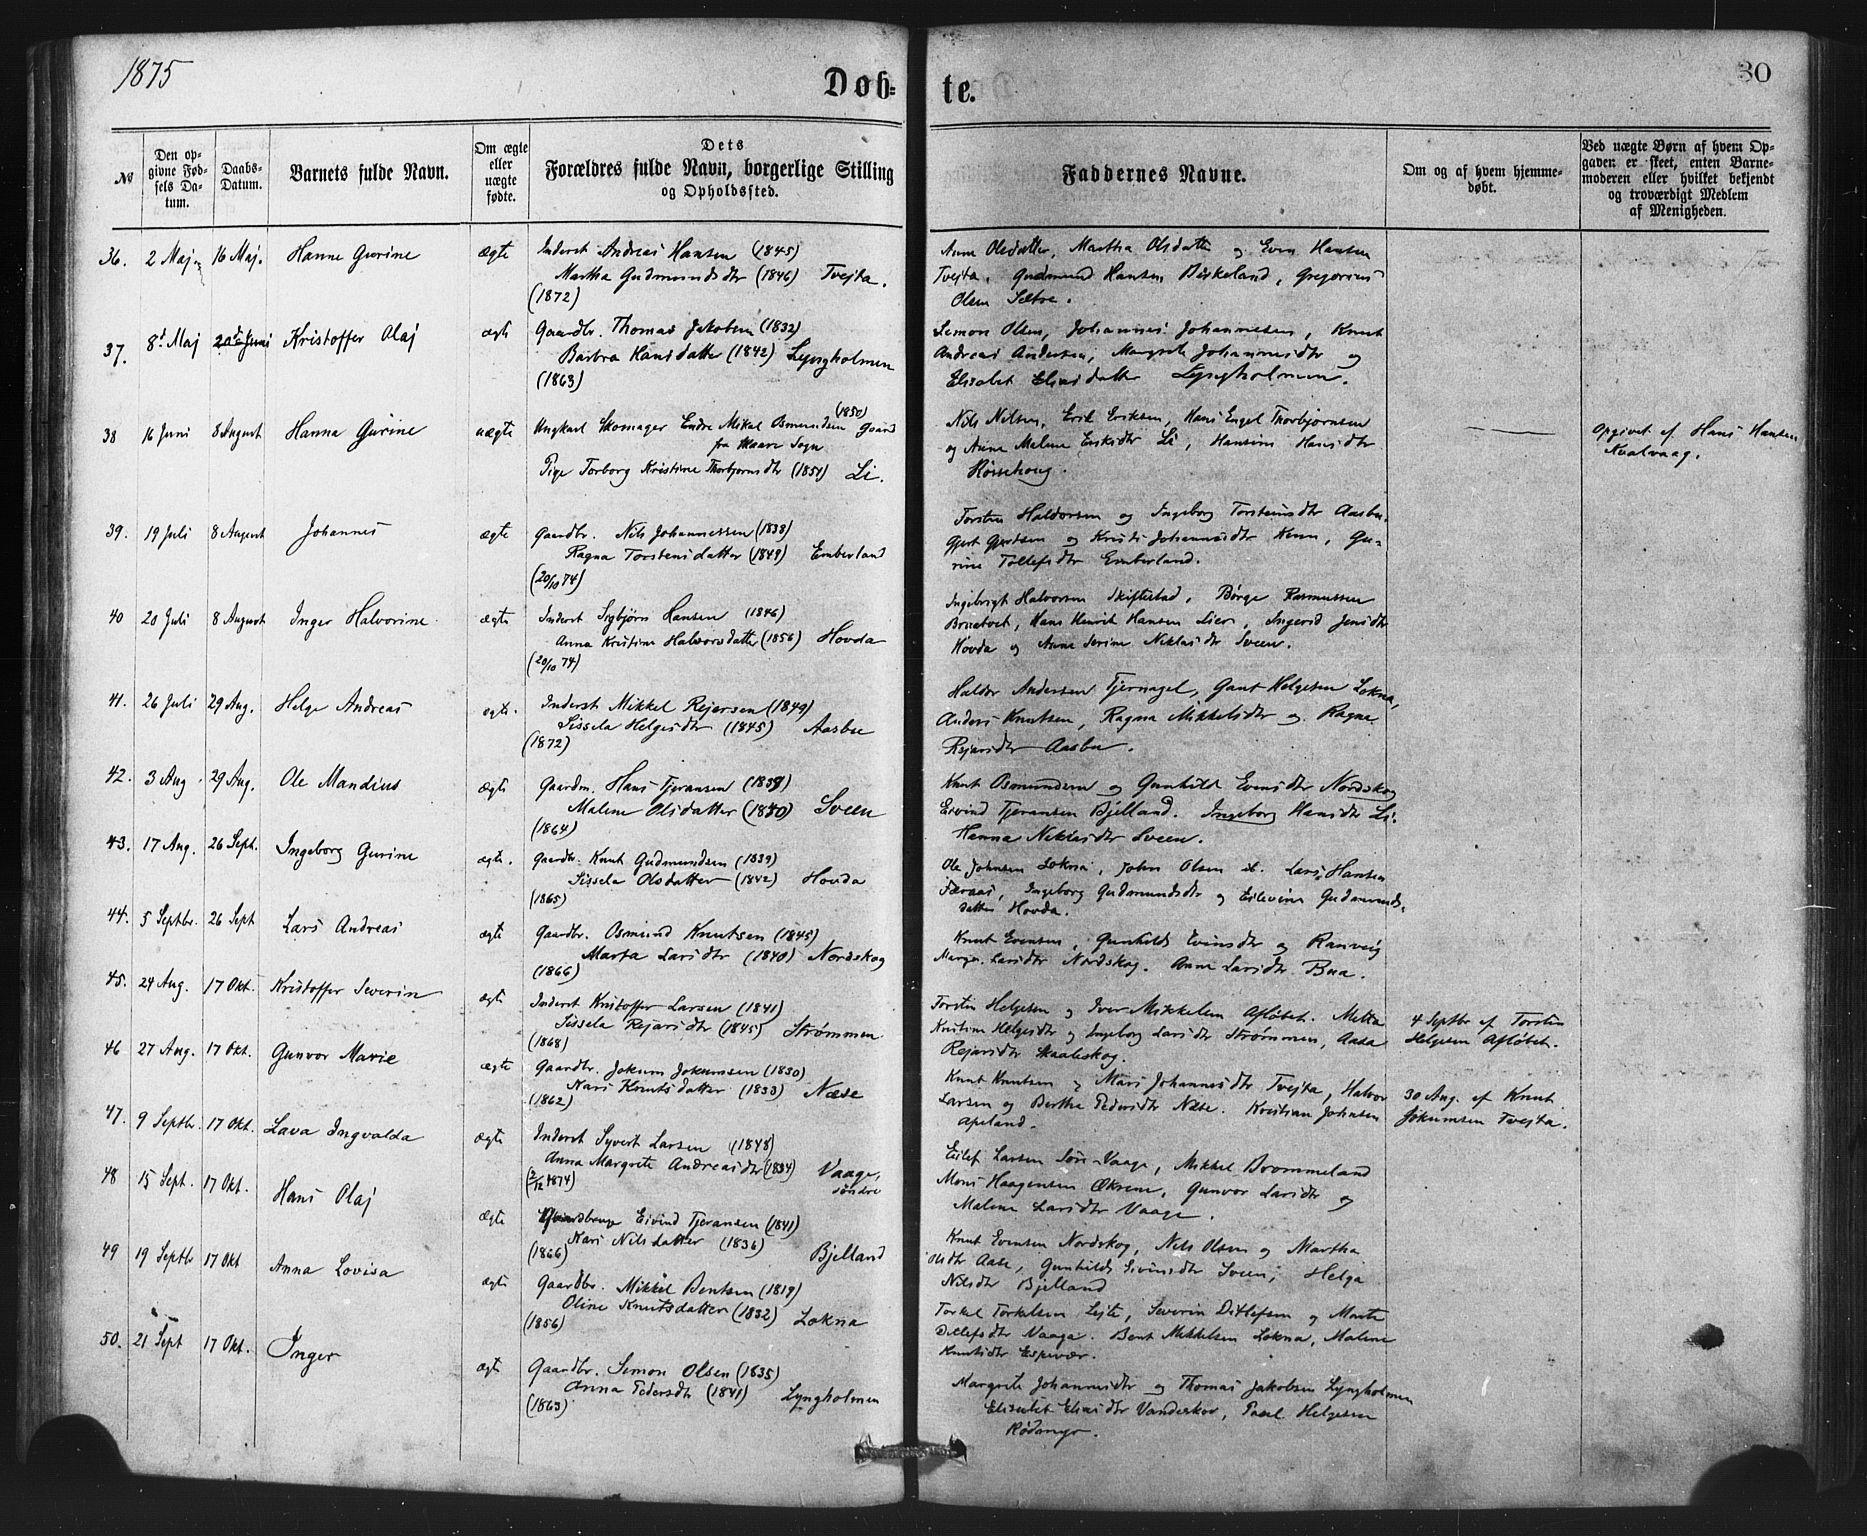 1875
Døb=
te.
30
№
Den op-
givne Fød-
sels Da-
tum.
Daabs-
Datum.
Barnets fulde Navn.
Om ægte
eller
uægte
fødte.
Dets
Forældres fulde Navn, borgerlige Stilling
og Opholdssted.
Faddernes Navne.
Om og af hvem hjemme-
døbt.
Ved uægte Børn af hvem Op-
gaven er skeet, enten Barne-
moderen eller hvilket bekjendt
og troværdigt Medlem
af Menigheden.
36. 2 Maj 16 Maj. Hanne Gurine ægte Inderst Andreas Hansen (1845)
Martha Gudmundsdtr (1846) Tvejta.
(1872)
Anne Olsdatter, Martha Olsdatter og Even Hansen
Tvejta, Gudmund Hansen Birkeland, Gregorius
Olsen Sætre.
37. 8de Maj 20de Juni Kristoffer Olaj ægte Gaardbr. Thomas Jakobsen (1832)
Barbra Hansdatter (1842) Lyngholmen
(1863)
Semon Olsen, Johannes Johannesen, Knut
Andreas Andersen, Margrete Johannesdtr og
Elisabet Eliasdatter Lyngholmen.
38 16 Juni 8 August Hanna Gurine uægte Ungkarl Skomager Endre Mikal Osmundsen (1850) Gaard
fra Skaare Sogn
Pige Torborg Kristine Thorbjørnsdtr (1851) Li.
Nils Nilsen, Erik Eriksen, Hans Engel Thorbjørnsen
og Anne Malene Eriksdtr Li, Hansine Hansdtr
Høssehoug.
Opgivet af Hans Hansen
Kvalvaag.
39. 19 Juli 8 August Johannes ægte Gaardbr. Nils Johannessen (1838)
Ragna Torstensdatter (1849) Emberland
(20/10 74)
Torsten Haldorsen og Ingeborg Torstensdtr Aasbu,
Gjert Gjertsen og Kristi Johannesdtr Kinn, Gu-
rine Tollefsdtr Emberland.
40 20 Juli 8 August Inger Halvorine. ægte Inderst Sigbjørn Hansen (1846)
Anna Kristine Halvorsdatter (1856) Hovda
(20/10 74)
Ingebrigt Halvorsen Skiftestad, Børge Rasmussen
Bruatvet, Hans Henrik Hansen Lier, Ingerid Jensdtr
Hovda og Anne Serine Niklasdtr Sveen.
41. 26 Juli 29 Aug. Helge Andreas ægte. Inderst Mikkel Rejersen (1849)
Sissela Helgesdtr (1845) Aasbu
(1872)
Haldor Andersen Tjernagel, Gaut Helgesen Lokna,
Anders Knutsen, Ragna Mikkelsdtr og Ragna
Rejarsdtr Aasbu.
42. 3 Aug. 29 Aug. Ole Mandius ægte Gaardm. Hans Tjeransen (1839)
Malene Olsdatter (1840) Sveen
(1864)
Knut Osmundsen og Gunhild Evensdtr Nordskog
Eivind Tjeransen Bjelland. Ingeborg Hansdtr Li.
Hanna Niklasdtr Sveen.
43. 17 Aug. 26 Sept. Ingeborg Gurine ægte. Gaardbr. Knut Gudmundsen (1839)
Sissela Olsdatter (1842) Hovda
(1865)
Ole Johnsen Lokna, John Olsen ib. Lars Hansen
Færaas, Ingeborg Gudmundsdtr og Eilevine Gudmunds-
datter Hovda.
44. 5 Septbr. 26 Sept Lars Andreas ægte Gaardbr. Osmund Knutsen (1845)
Marta Larsdtr (1840) Nordskog
(1866)
Knut Evensen, Gunhild Evensdtr og Ranveig
Margr. Larsdtr Nordskog. Anne Larsdtr Bua.
45. 24 Aug. 17 Okt. Kristoffer Severin ægte Inderst Kristoffer Larsen (1841)
Sissela Rejarsdtr (1845) Strømmen
(1868)
Torstin Helgesen og Iver Mikkelsen Afløbet. Metta
Kristine Helgesdtr og Ingeborg Larsdtr Strømmen, Aasa
Rejarsdtr Skaaleskog.
4 Septbr af Torstin
Helgesen Afløbet.
46 27 Aug. 17 Okt. Gunvor Marie ægte Gaardbr. Jokum Jokumsen (1830)
Kari Knutsdatter (1833) Næse
(1862)
Knut Knutsen og Mari Johannesdtr Tvejta, Halvor
Larsen og Berthe Pedersdtr Næse. Kristian Johnsen
Apeland.
30 Aug. af Knut
Jokumsen Tvejta.
47. 9 Septbr. 17 Okt. Lava Ingvalda ægte Inderst Syvert Larsen (1848)
Anna Margrete Andreasdtr (1834) Vaage,
(3/12 1874) søndre
Eilef Larsen Søre-Vaage, Mikkel Brommeland
Mons Haagensen Økrene, Gunvor Larsdtr og
Malene Larsdtr Vaage.
48 15 Sept. 17 Okt. Hans Olaj ægte Gaardbruge Eivind Tjeransen (1841)
Kari Nilsdatter (1836) Bjelland
(1866)
Knut Evensen Nordskog, Nils Olsen og Martha
Olsdtr Aase, Gunhild Eivindsdtr Sveen, Helga
Nilsdtr Bjelland
49 19 Septbr 17 Okt Anna Lovisa ægte Gaardbr. Mikkel Bentsen (1819)
Oline Knutsdatter (1832) Lokna
(1856)
Torkel Torkelsen Lejte, Severin Ditlefsen og Marte
Ditlefsdtr Vaaga. Bent Mikkelsen Lokna, Malene
Knutsdtr Espevær.
50. 21 Sept 17 Okt. Inger ægte Gaardbr. Simon Olsen (1835)
Anna Pedersdtr (1841) Lyngholmen
(1863)
Margrete Johannesdtr og Thomas Jakobsen Lyngholmen
Elisabet Eliasdtr Vanderskor, Paul Helgesen
Rødamyr.